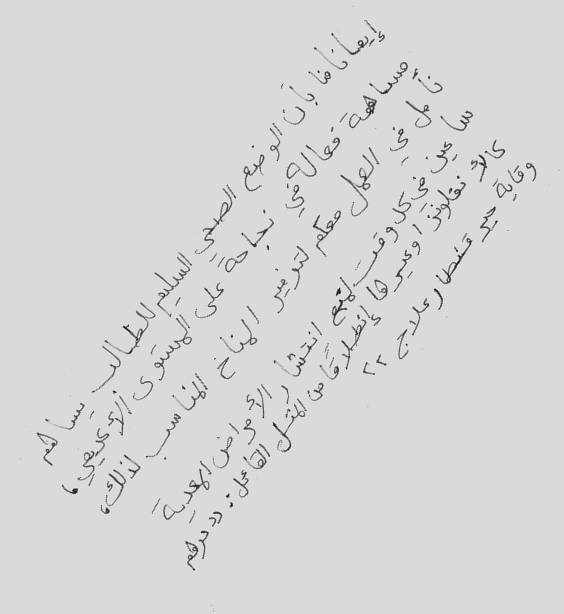 إيمانا منا بأن الوضع الصحي السليم للطالب يساهم
مساهمة فعالة في نجاحة على المستوى الأكاديمي ،
نأمل في العمل معكم لتوفير المناخ المناسب لذلك ،
ساعين في كل وقت لمنع انتشار الأمراض المعدية
كالأنفلونزا وغيرها إنطلاقا من المثل القائل : " درهم
وقاية خير من قنطار علاج "